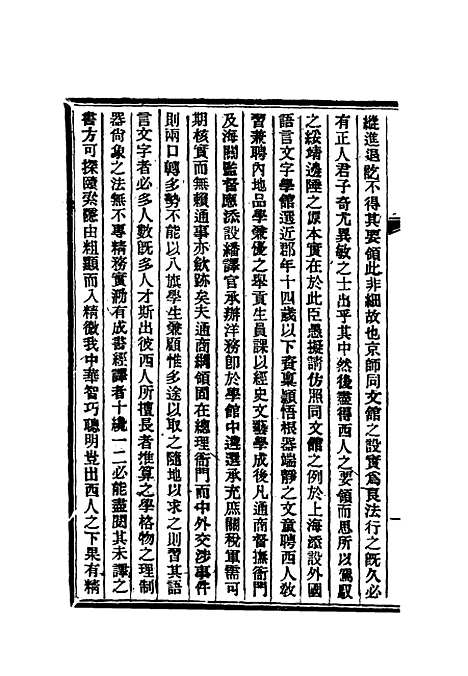 縱進退訖不得其要領此非細故也京師同文館之設實爲良法行之旣久必
有正人君子奇尤異敏之士出乎其中然後盡得西人之要領而思所以駕馭
之綏靖邊陲之原本實在於此臣愚擬請仿照同文館之例於上海添設外國
語言文字學館選近郡年十四歲以下資稟穎悟根器端靜之文童聘西人敎
習兼聘內地品學兼優之舉貢生員課以經史文藝學成後凡通商督撫衙門
及海關監督應添設繙譯官承辦洋務卽於學館中遴選承充庶關稅軍需可
期核實而無賴通事亦斂跡矣夫通商綱領固在總理衙門而中外交涉事件
則兩口轉多勢不能以八旗學生兼顧惟多途以取之隨地以求之則習其語
言文字者必多人數旣多人才斯出彼西人所擅長者推算之學格物之理制
器尙象之法無不專精務實泐有成書經譯者十纔一二必能盡閱其未譯之
書方可探賾索隱由粗顯而入精微我中華智巧聰明豈出西人之下果有精